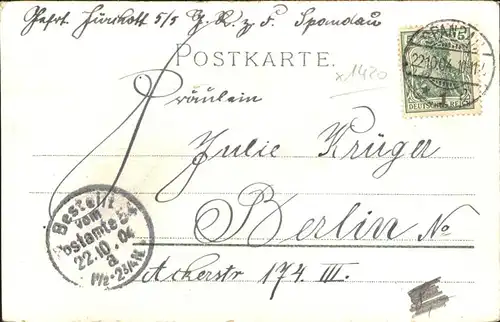 5/5 G. R. z. F. Spandau
POSTKARTE.
SPANDAU
22.10.04
DEUTSCHES REICH
x1420
Fräulein
Julie Krüger
Berlin No
Ackerstr 174. III.
Bestellt
vom
Postamte 54
22.10.04
a
1½-2¾N